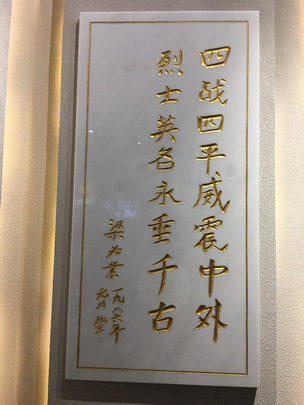 四战四平威震中外
烈士英名永垂千古
梁必业
一九八六年
元月